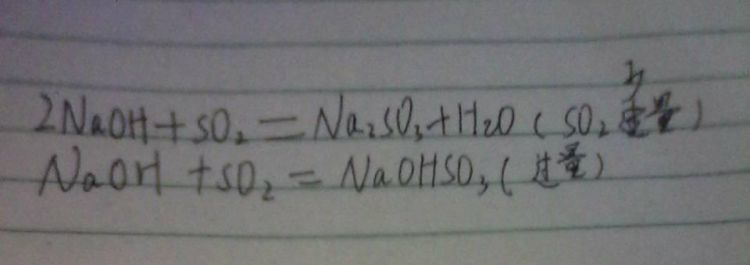 2NaOH+SO₂=Na₂SO₃+H₂O(SO₂少量)
NaOH+SO₂=NaOHSO₃(过量)